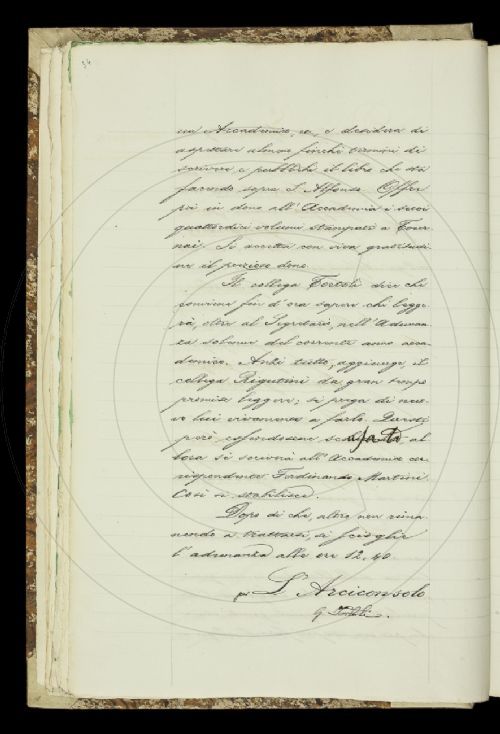 54
un Accademia, ec, e desidera di
aspettare almeno finchè termini di
scrivere e pubblichi il libro che sta
facendo sopra S. Alfonso. Offre
poi in dono all'Accademia i suoi
quattordici volumi stampati a Tour-
nai. Si accetta con viva gratitudi-
ne il prezioso dono.
Il collega Tortoli dice che
conviene fin d'ora sapere chi legge-
rà, oltre al Segretario, nell'Adunan-
za solenne del corrente anno acca-
demico. Anzi tutto, aggiunge, il
collega Rigutini da gran tempo
promise leggere; si prega di nuo-
vo lui vivamente a farlo. Quando
però, al
lora si scriverà all'Accademico cor-
rispondente Ferdinando Martini.
Così si stabilisce.
Dopo di che, altro non rima-
nendo a trattarsi, si scioglie
l'adunanza alle ore 12,40
per L'Arciconsolo
G. Tortoli.